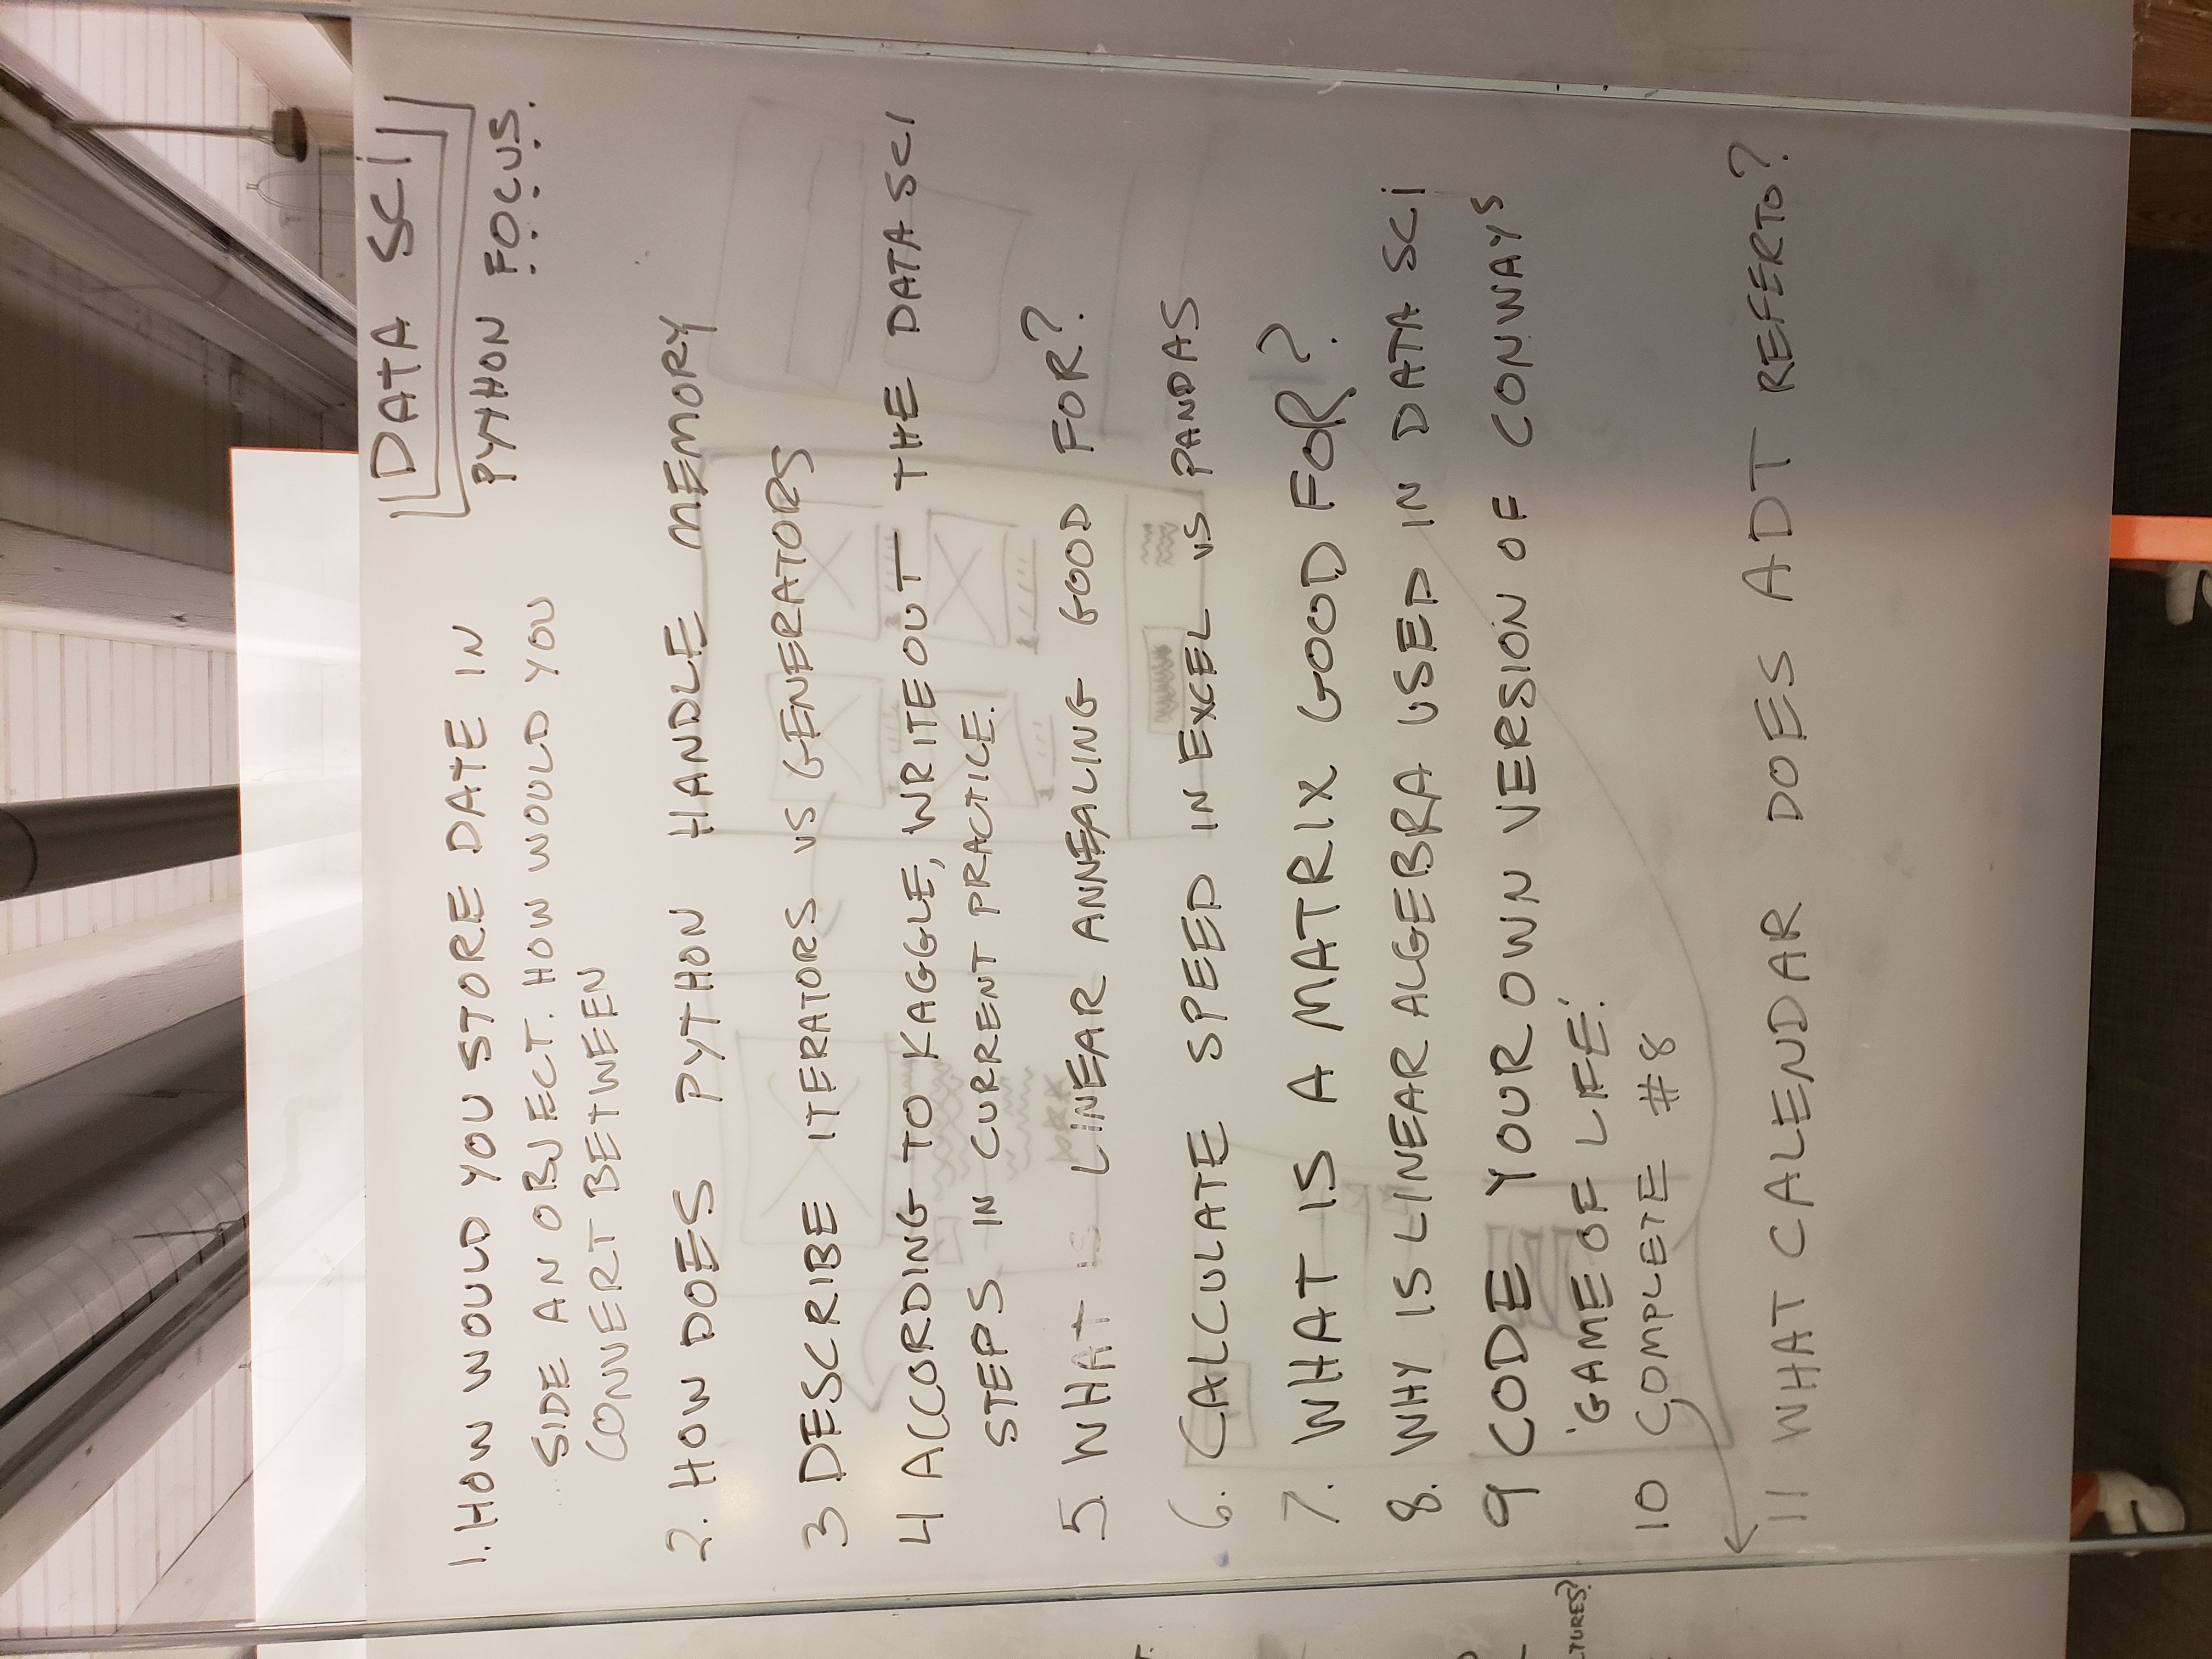 DATA SCI
PYTHON FOCUS.
1. HOW WOULD YOU STORE DATE IN
SIDE AN OBJECT. HOW WOULD YOU
CONVERT BETWEEN
2. HOW DOES PYTHON HANDLE MEMORY
3 DESCRIBE ITERATORS VS GENERATORS
4 ACCORDING TO KAGGLE, WRITE OUT THE DATA SCI
STEPS IN CURRENT PRACTICE.
5. WHAT IS LINEAR ANNEALING GOOD FOR?
6. CALCULATE SPEED IN EXCEL VS PANDAS
7. WHAT IS A MATRIX GOOD FOR?
8. WHY IS LINEAR ALGEBRA USED IN DATA SCI
9 CODE YOUR OWN VERSION OF CONWAYS
'GAME OF LIFE.'
10 COMPLETE #8
11 WHAT CALENDAR DOES ADT REFER TO?